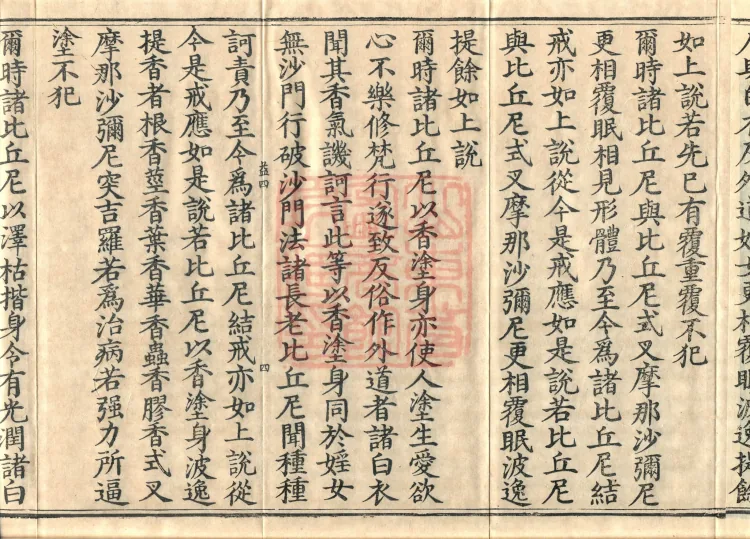 如上說若先已有覆重覆不犯
爾時諸比丘尼與比丘尼式叉摩那沙彌尼
更相覆眠相見形體乃至今爲諸比丘尼結
戒亦如上說從今是戒應如是說若比丘尼
與比丘尼式叉摩那沙彌尼更相覆眠波逸
提餘如上說
爾時諸比丘尼以香塗身亦使人塗生愛欲
心不樂修梵行遂致反俗作外道者諸白衣
聞其香氣譏訶言此等以香塗身同於婬女
無沙門行破沙門法諸長老比丘尼聞種種
益四
四
訶責乃至今爲諸比丘尼結戒亦如上說從
今是戒應如是說若比丘尼以香塗身波逸
提香者根香莖香葉香華香蟲香膠香式叉
摩那沙彌尼突吉羅若爲治病若强力所逼
塗不犯
爾時諸比丘尼以澤枯揩身令有光潤諸白